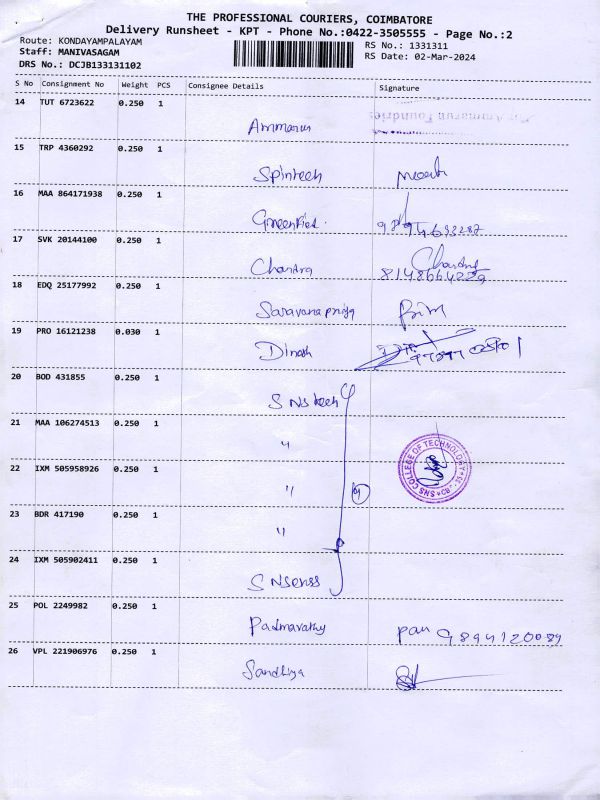 THE PROFESSIONAL COURIERS, COIMBATORE
Delivery Runsheet - KPT - Phone No.:0422-3505555 - Page No.:2
Route: KONDAYAMPALAYAM
RS No.: 1331311
Staff: MANIVASAGAM
RS Date: 02-Mar-2024
DRS No.: DCJB133131102
S No Consignment No Weight PCS Consignee Details Signature
14 TUT 6723622 0.250 1
Ammarun
For Ammarun Foundries
15 TRP 4360292 0.250 1
Spintech
16 MAA 864171938 0.250 1
Greenfield.
17 SVK 20144100 0.250 1
Chandra
Chandra
8148664229
18 EDQ 25177992 0.250 1
Saravanapriya
19 PRO 16121238 0.030 1
Dinesh
20 BOD 431855 0.250 1
SNS tech
21 MAA 106274513 0.250 1
"
SNS COLLEGE OF TECHNOLOGY
22 IXM 505958926 0.250 1
"
23 BDR 417190 0.250 1
"
24 IXM 505902411 0.250 1
25 POL 2249982 0.250 1
Padmavathy
9894120089
26 VPL 221906976 0.250 1
Sandhiya